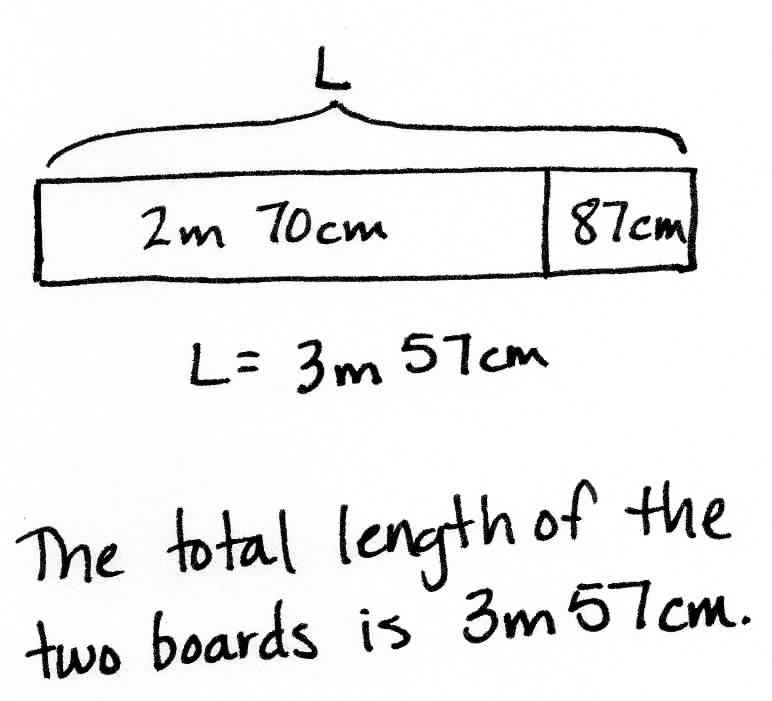 L
2m 70cm 87cm
L= 3m 57cm
The total length of the
two boards is 3m 57cm.